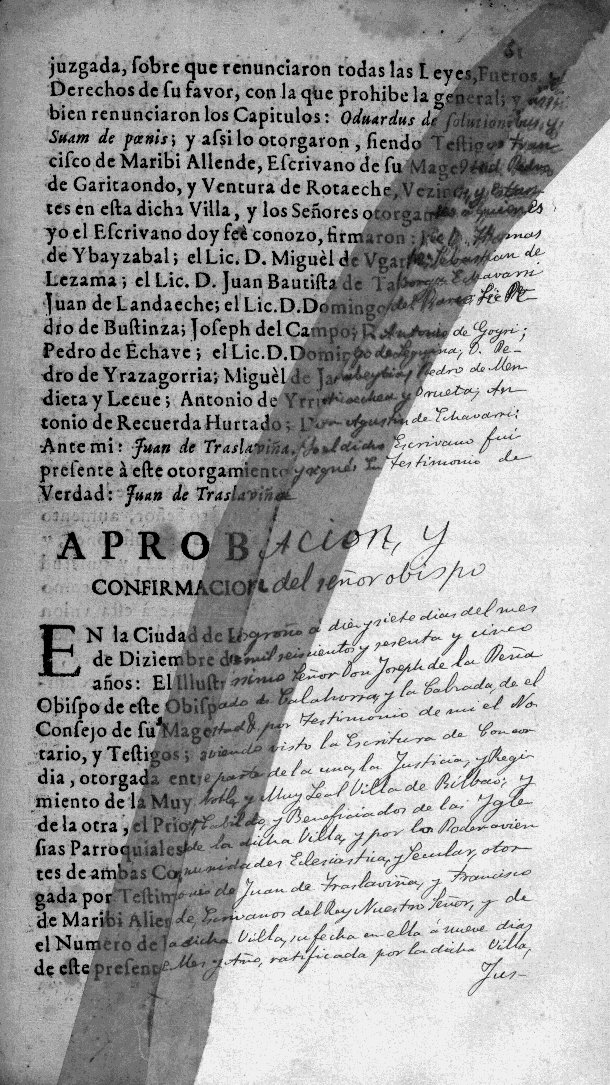 51
juzgada, sobre que renunciaron todas las Leyes, Fueros, y
Derechos de su favor, con la que prohibe la general; y assi
bien renunciaron los Capitulos: Oduardus de solutionibus, y
Suam de pœnis; y assi lo otorgaron, siendo Testigos Fran-
cisco de Maribi Allende, Escrivano de su Magestad, Pedro
de Garitaondo, y Ventura de Rotaeche, Vezinos, y Estan-
tes en esta dicha Villa, y los Señores otorgantes à quienes
yo el Escrivano doy feè conozo, firmaron: Lic. D. Thomas
de Ybayzabal; el Lic. D. Miguèl de Ugarte; Sebastian de
Lezama; el Lic. D. Juan Bautista de Echavarri
Juan de Landaeche; el Lic. D. Domingo del Barco; Lic. Pe-
dro de Bustinza; Joseph del Campo; D. Antonio de Goyri;
Pedro de Echave; el Lic. D. Domingo de Leguina; D. Pe-
dro de Yrazagorria; Miguèl de Jarabeytia; Piedro de Men-
dieta y Lecue; Antonio de y Orueta; An-
tonio de Recuerda Hurtado; Don Agustin de Echavarri:
Ante mi: Juan de Traslaviña. Yo el dicho Escrivano fui
presente à este otorgamiento y signè En testimonio de
Verdad: Juan de Traslaviña
APROBACION, y
CONFIRMACION del señor obispo
EN la Ciudad de Logroño à diez y siete dias del mes
de Diziembre de mil seiscientos y sesenta y cinco
años: El Illustrissimo Señor Don Joseph de la Peña
Obispo de este Obispado de Calahorra, y la Calzada, de el
Consejo de su Magestad &. por testimonio de mi el No-
tario, y Testigos; aviendo visto la Escritura de Concor-
dia, otorgada entre parte de la una, la Justicia, y Regi-
miento de la Muy Noble, y Muy Leal Villa de Bilbao; y
de la otra, el Prior, Cabildo, y Beneficiados de las Ygle-
sias Parroquiales de la dicha Villa, y por los Poderavien-
tes de ambas Comunidades Eclesiastica, y Secular, otor-
gada por Testimonio de Juan de Traslaviña, y Francisco
de Maribi Allende Escrivanos del Rey Nuestro Señor, y de
el Numero de la dicha Villa, su fecha en ella à nueve dias
de este presente Mes y Año, ratificada por la dicha Villa,
Jus-